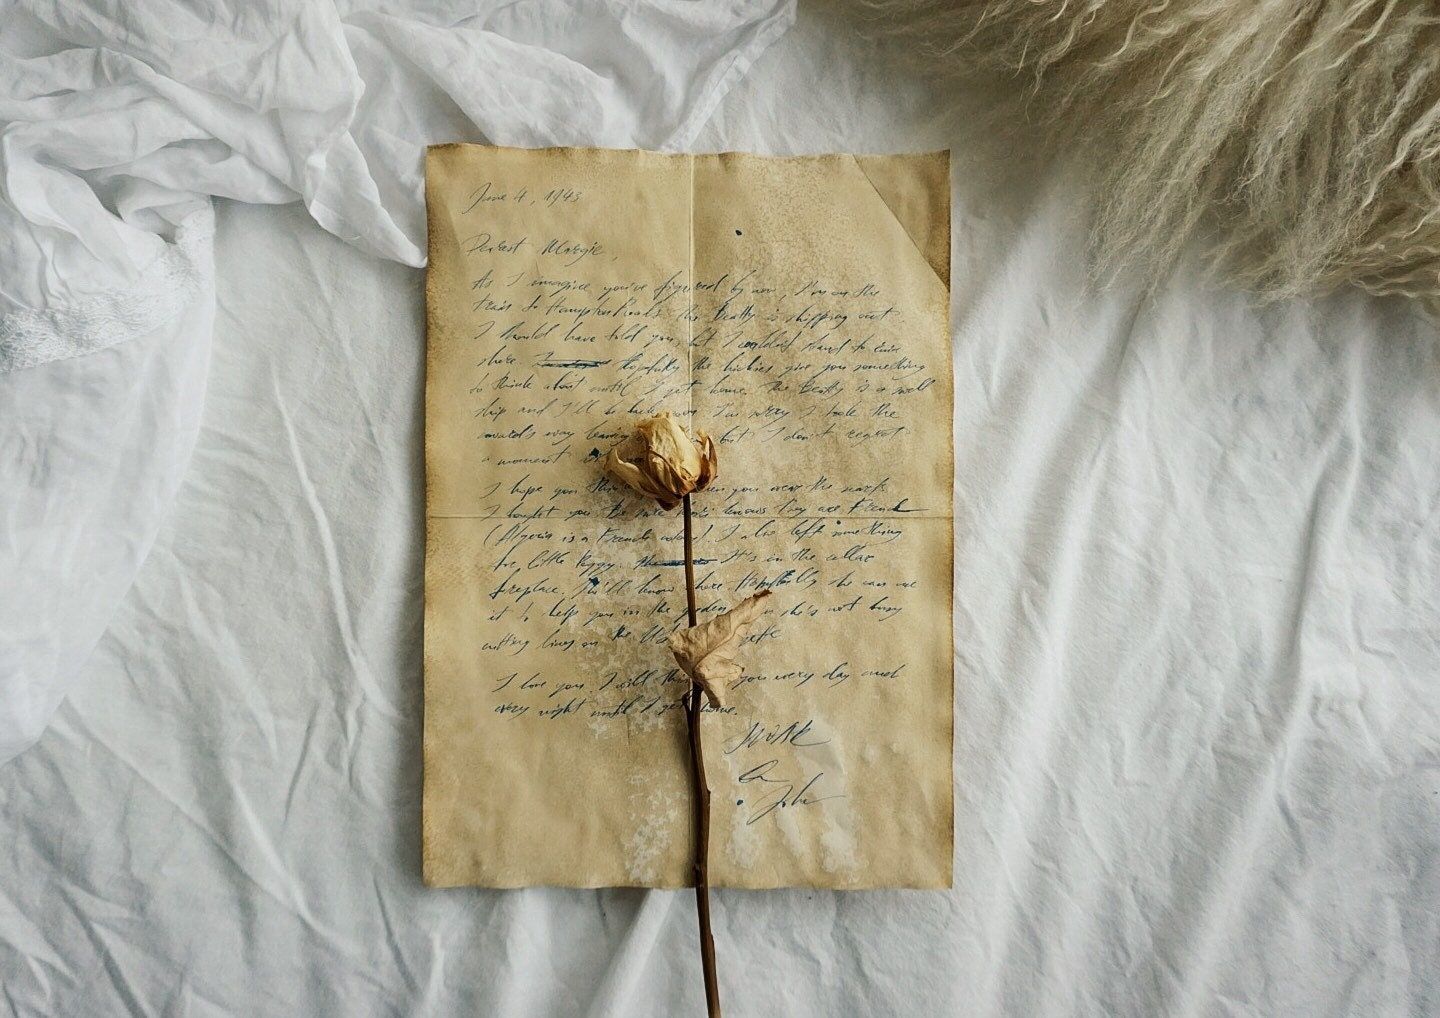 June 4, 1943
Dearest Margie,
As I imagine you've figured by now, I'm on the
train to Hampton Roads. The Beatty is shipping out.
I should have told you, but I couldn't stand to
there. Hopefully the babies give you something
to think about until I get home. The Beatty is a well
ship and I'll be back soon. I'm sorry I took the
coward's way leaving but I don't regret
a moment
I hope you think when you wear the scarfs
I bought you. The knows they are French
(Algeria is a French colony). I also left something
for little Peggy. It's in the cellar
fireplace, she'll know where. Hopefully she can use
it to help you in the garden she's not busy
cutting lines on the
I love you. I will think you every day and
every night until I get home.
John